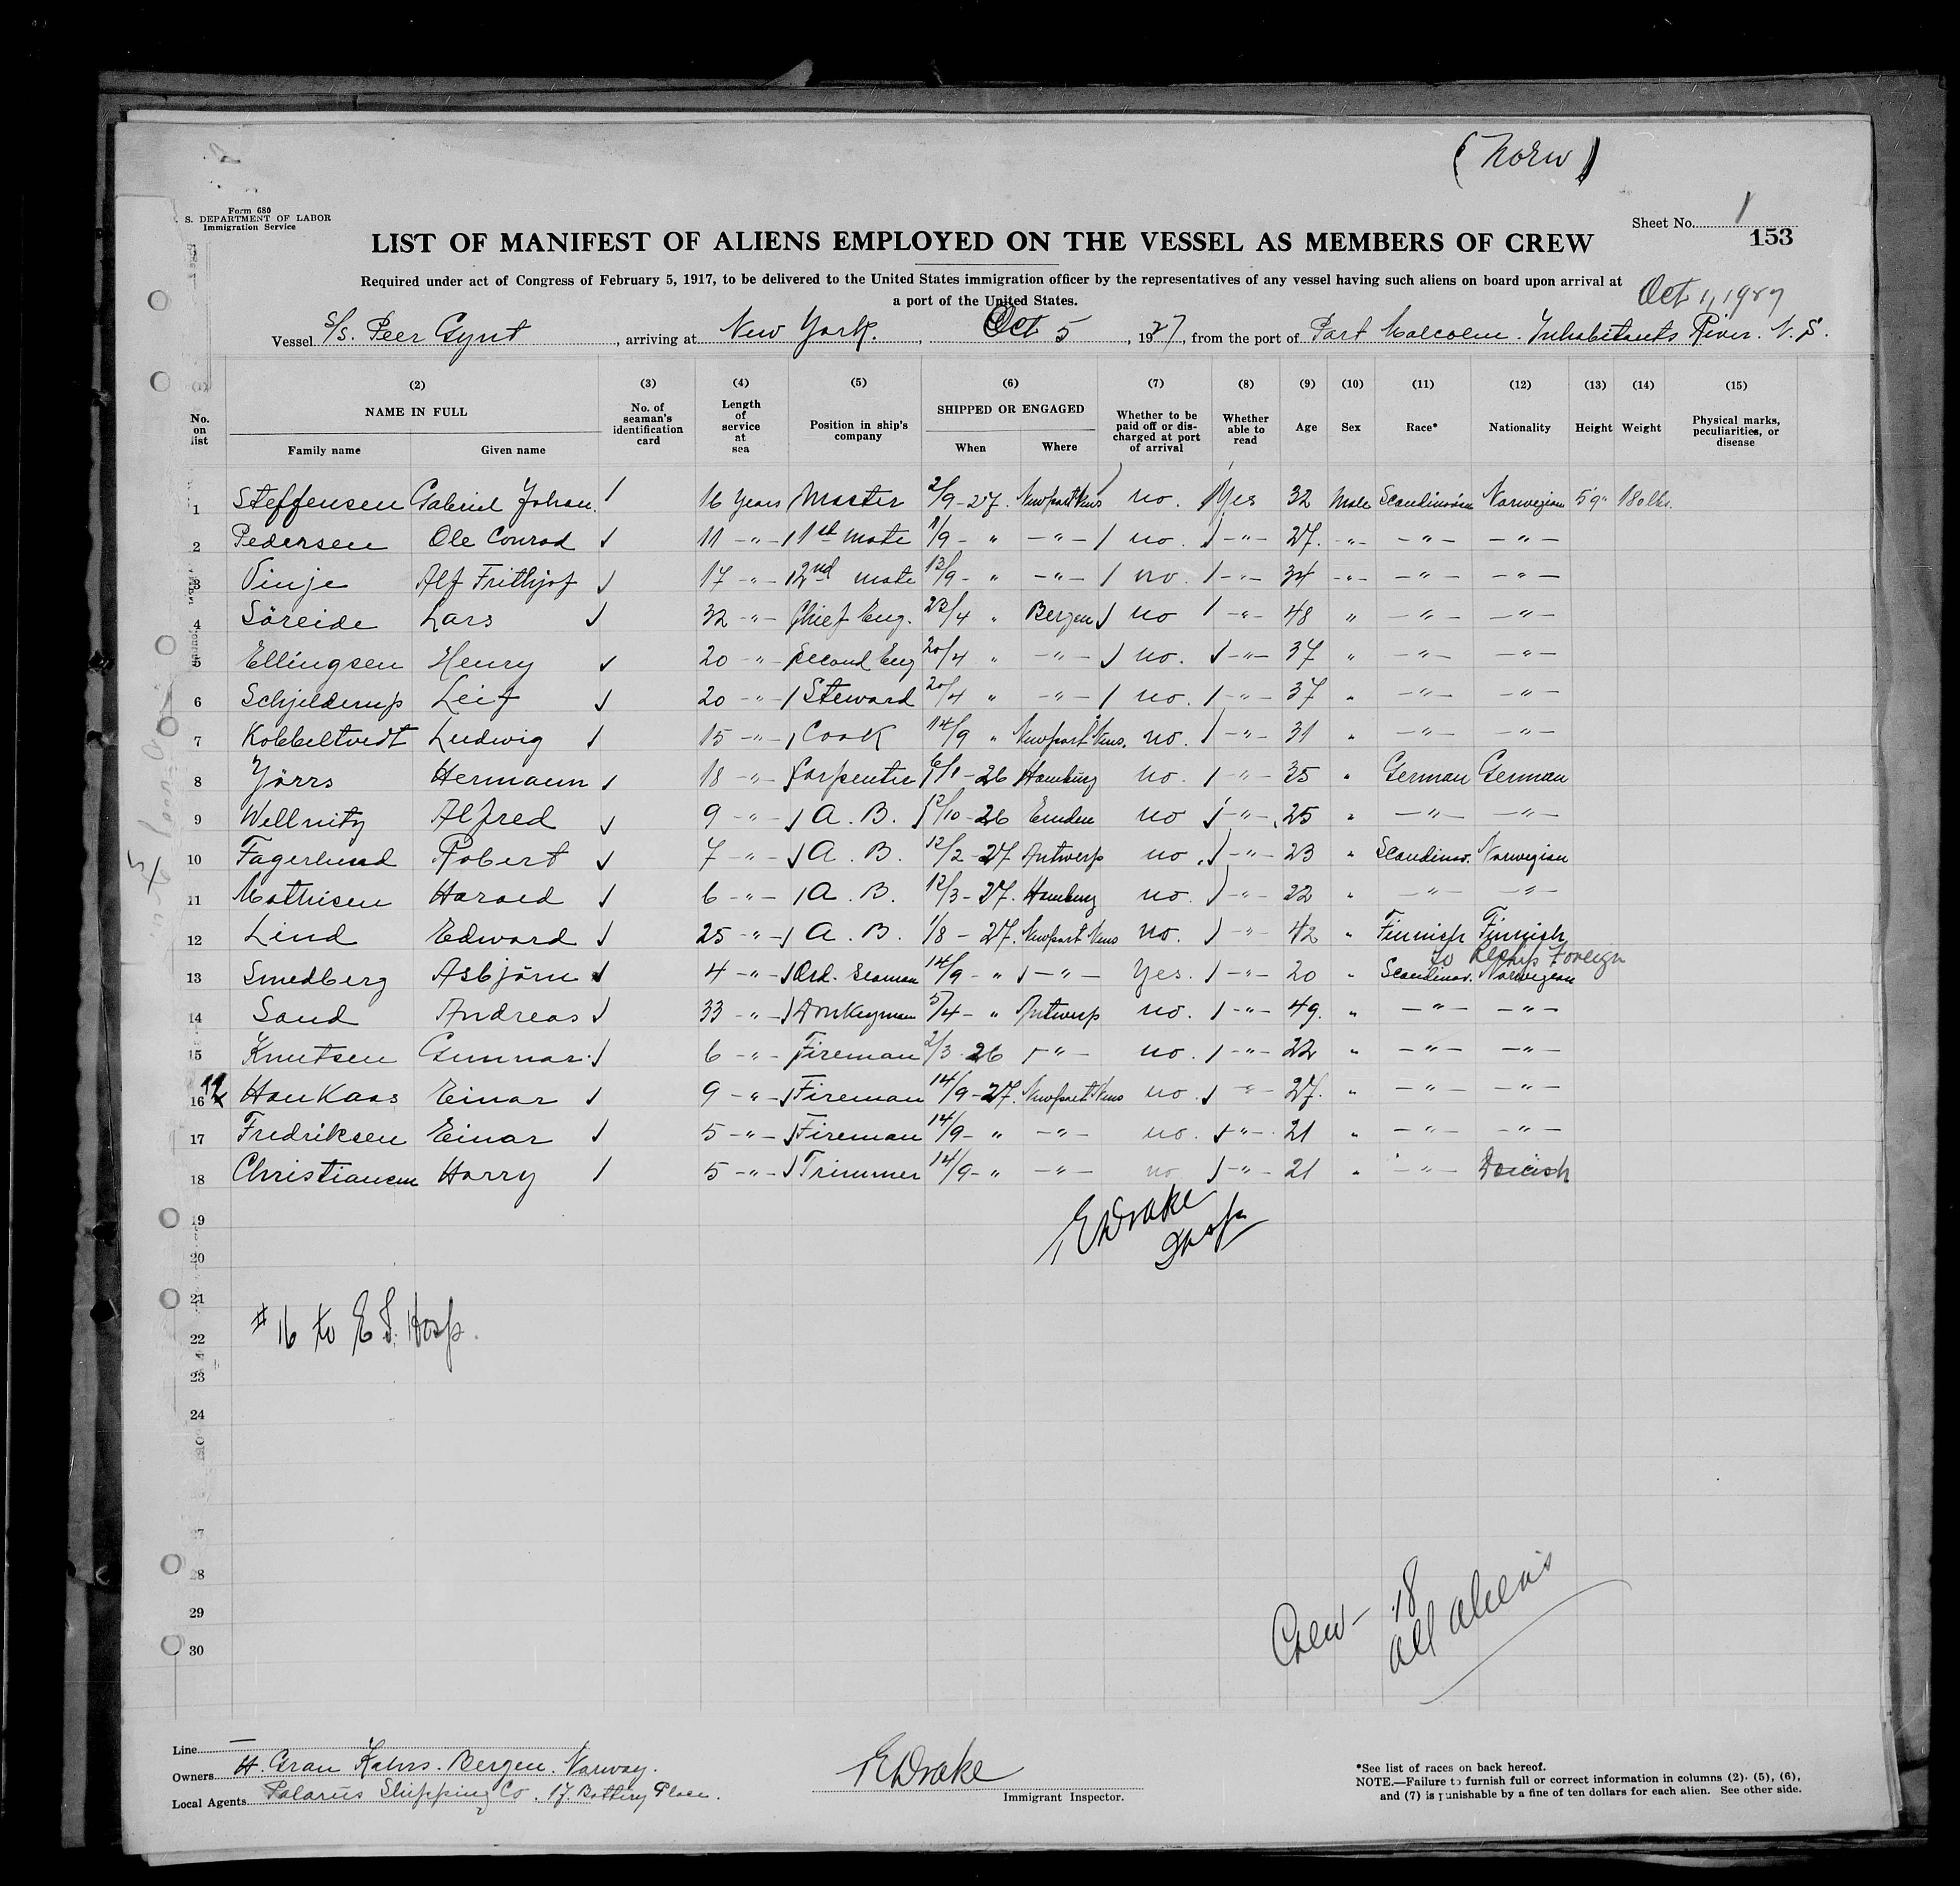 ( Norw )
Form 680
S. DEPARTMENT OF LABOR
Immigration Service
Sheet No. 1
153
LIST OF MANIFEST OF ALIENS EMPLOYED ON THE VESSEL AS MEMBERS OF CREW
Required under act of Congress of February 5, 1917, to be delivered to the United States immigration officer by the representatives of any vessel having such aliens on board upon arrival at
a port of the United States.
Oct 1, 1927
Vessel S/S. Peer Gynt, arriving at New York., Oct 5, 1927, from the port of Port Malcolm. Inhabitants River. N. S.
(1) (2) (3) (4) (5) (6) (7) (8) (9) (10) (11) (12) (13) (14) (15)
No. on list NAME IN FULL Family name Given name No. of seaman's identification card Length of service at sea Position in ship's company SHIPPED OR ENGAGED When Where Whether to be paid off or discharged at port of arrival Whether able to read Age Sex Race* Nationality Height Weight Physical marks, peculiarities, or disease
1 Steffensen Gabriel Johan. 16 Years Master 2/9-27. Newport News no. Yes 32 Male Scandinavian Norwegian 5'9" 180 lbs.
2 Pedersen Ole Conrad 11 -"- 1st mate 1/9- " -"- no. -"- 27. -"- -"- -"-
3 Vinje Alf Frithjof 17 -"- 2nd mate 13/9- " -"- no. -"- 34 -"- -"- -"-
4 Söreide Lars 32 -"- Chief Eng. 23/4 " Bergen no -"- 48 " -"- -"-
5 Ellingsen Henry 20 -"- Second Eng 20/4 " -"- no. -"- 37 " -"- -"-
6 Schjelderup Leif 20 -"- Steward 20/4 " -"- no. -"- 37 " -"- -"-
7 Kobbeltvedt Ludwig 15 -"- Cook 14/9 " Newport News. no. -"- 31 " -"- -"-
8 Yörrs Hermann 18 -"- Carpenter 6/1-26 Hamburg no. -"- 35 " German German
9 Wellnitz Alfred 9 -"- A. B. 12/10-26 Emden no -"- 25 " -"- -"-
10 Fagerlund Robert 7 -"- A. B. 12/2-27 Antwerp no -"- 23 " Scandinav. Norwegian
11 Mathisen Harald 6 -"- A. B. 12/3-27. Hamburg no. -"- 22 " -"- -"-
12 Lind Edward 25 -"- A. B. 1/8-27. Newport News no. -"- 42 " Finnish Finnish
to Reship Foreign
13 Smedberg Asbjörn 4 -"- Ord. Seaman 14/9- " -"- Yes. -"- 20 " Scandinav. Norwegian
14 Sand Andreas 33 -"- Donkeyman 5/4- " Antwerp no. -"- 49. " -"- -"-
15 Knutsen Gunnar 6 -"- Fireman 2/3-26 -"- no. -"- 22 " -"- -"-
16 Haukaas Einar 9 -"- Fireman 14/9-27. Newport News no. -"- 27. " -"- -"-
17 Fredriksen Einar 5 -"- Fireman 14/9- " -"- no. -"- 21 " -"- -"-
18 Christiansen Harry 5 -"- Trimmer 14/9- " -"- no -"- 21 " -"- Danish
19
EDrake
Insp
20
21
# 16 to E. I. Hosp.
22
23
24
27
28
29
30
Crew - 18
all aliens
Line —
Owners H. Gran Kahrs. Bergen. Norway.
Local Agents Polarus Shipping Co. 17. Battery Place.
EDrake
Immigrant Inspector.
*See list of races on back hereof.
NOTE.—Failure to furnish full or correct information in columns (2), (5), (6),
and (7) is punishable by a fine of ten dollars for each alien. See other side.